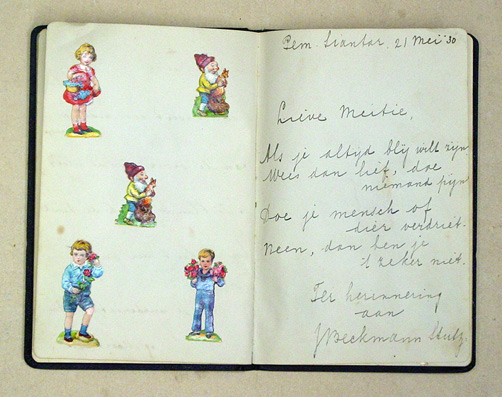 Pem. Siantar, 21 Mei '30
Lieve Meitie,
Als je altijd blij wilt zijn,
Wees dan lief, doe
niemand pijn
Doe je mensch of
dier verdriet.
Neen, dan ben je
't zeker niet.
Ter herinnering
aan
J Beckmann Stutz.